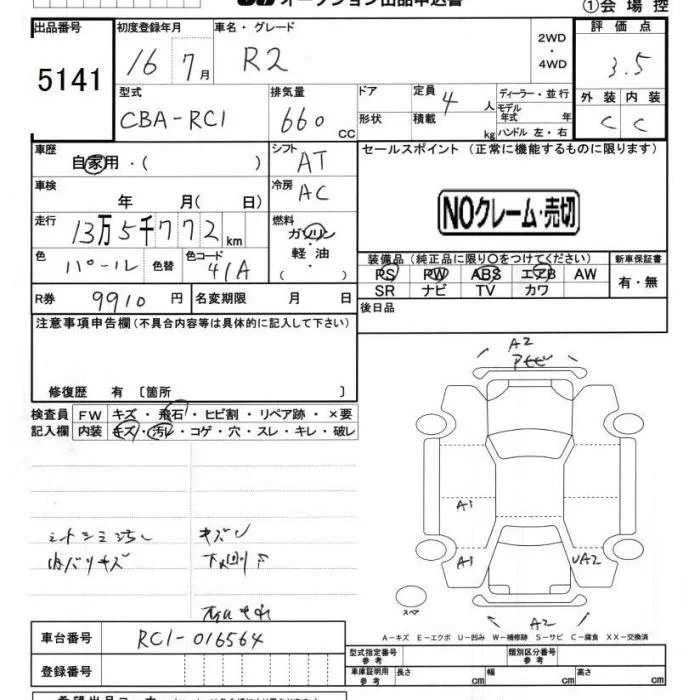 オークション出品申込書
①会場控
出品番号
5141
初度登録年月
16 7月
車名・グレード
R2
2WD
・
4WD
評価点
3.5
型式
CBA-RC1
排気量
660 cc
ドア
形状
定員
4人
積載
kg
ディーラー・並行
モデル年式 年
ハンドル 左・右
外装 内装
C C
車歴
自家用・( )
シフト
AT
セールスポイント (正常に機能するものに限ります)
車検
年 月( 日)
冷房
AC
NOクレーム・売切
走行
13万5千772km
燃料
ガソリン
・
軽油
( )
色
パール
色替
色コード
41A
装備品(純正品に限り○をつけてください)
新車保証書
PS PW ABS エアB AW
SR ナビ TV カワ
有・無
R券
9910円
名変期限 月 日
後日品
注意事項申告欄(不具合内容等は具体的に記入して下さい)
修復歴 有 〔箇所 〕
A2
検査員
記入欄
FW キズ・飛石・ヒビ割・リペア跡・×要
内装 キズ・汚レ・コゲ・穴・スレ・キレ・破レ
A1
シートシミ汚レ
キズ
内バリキズ
下回り
A1
UA2
スペア
A2
A-キズ E-エクボ U-凹み W-補修跡 S-サビ C-腐食 XX-交換済
車台番号
RC1-016564
登録番号
型式指定番号
参考
類別区分番号
参考
車庫証明用
参考
長さ cm 幅 cm 高さ cm